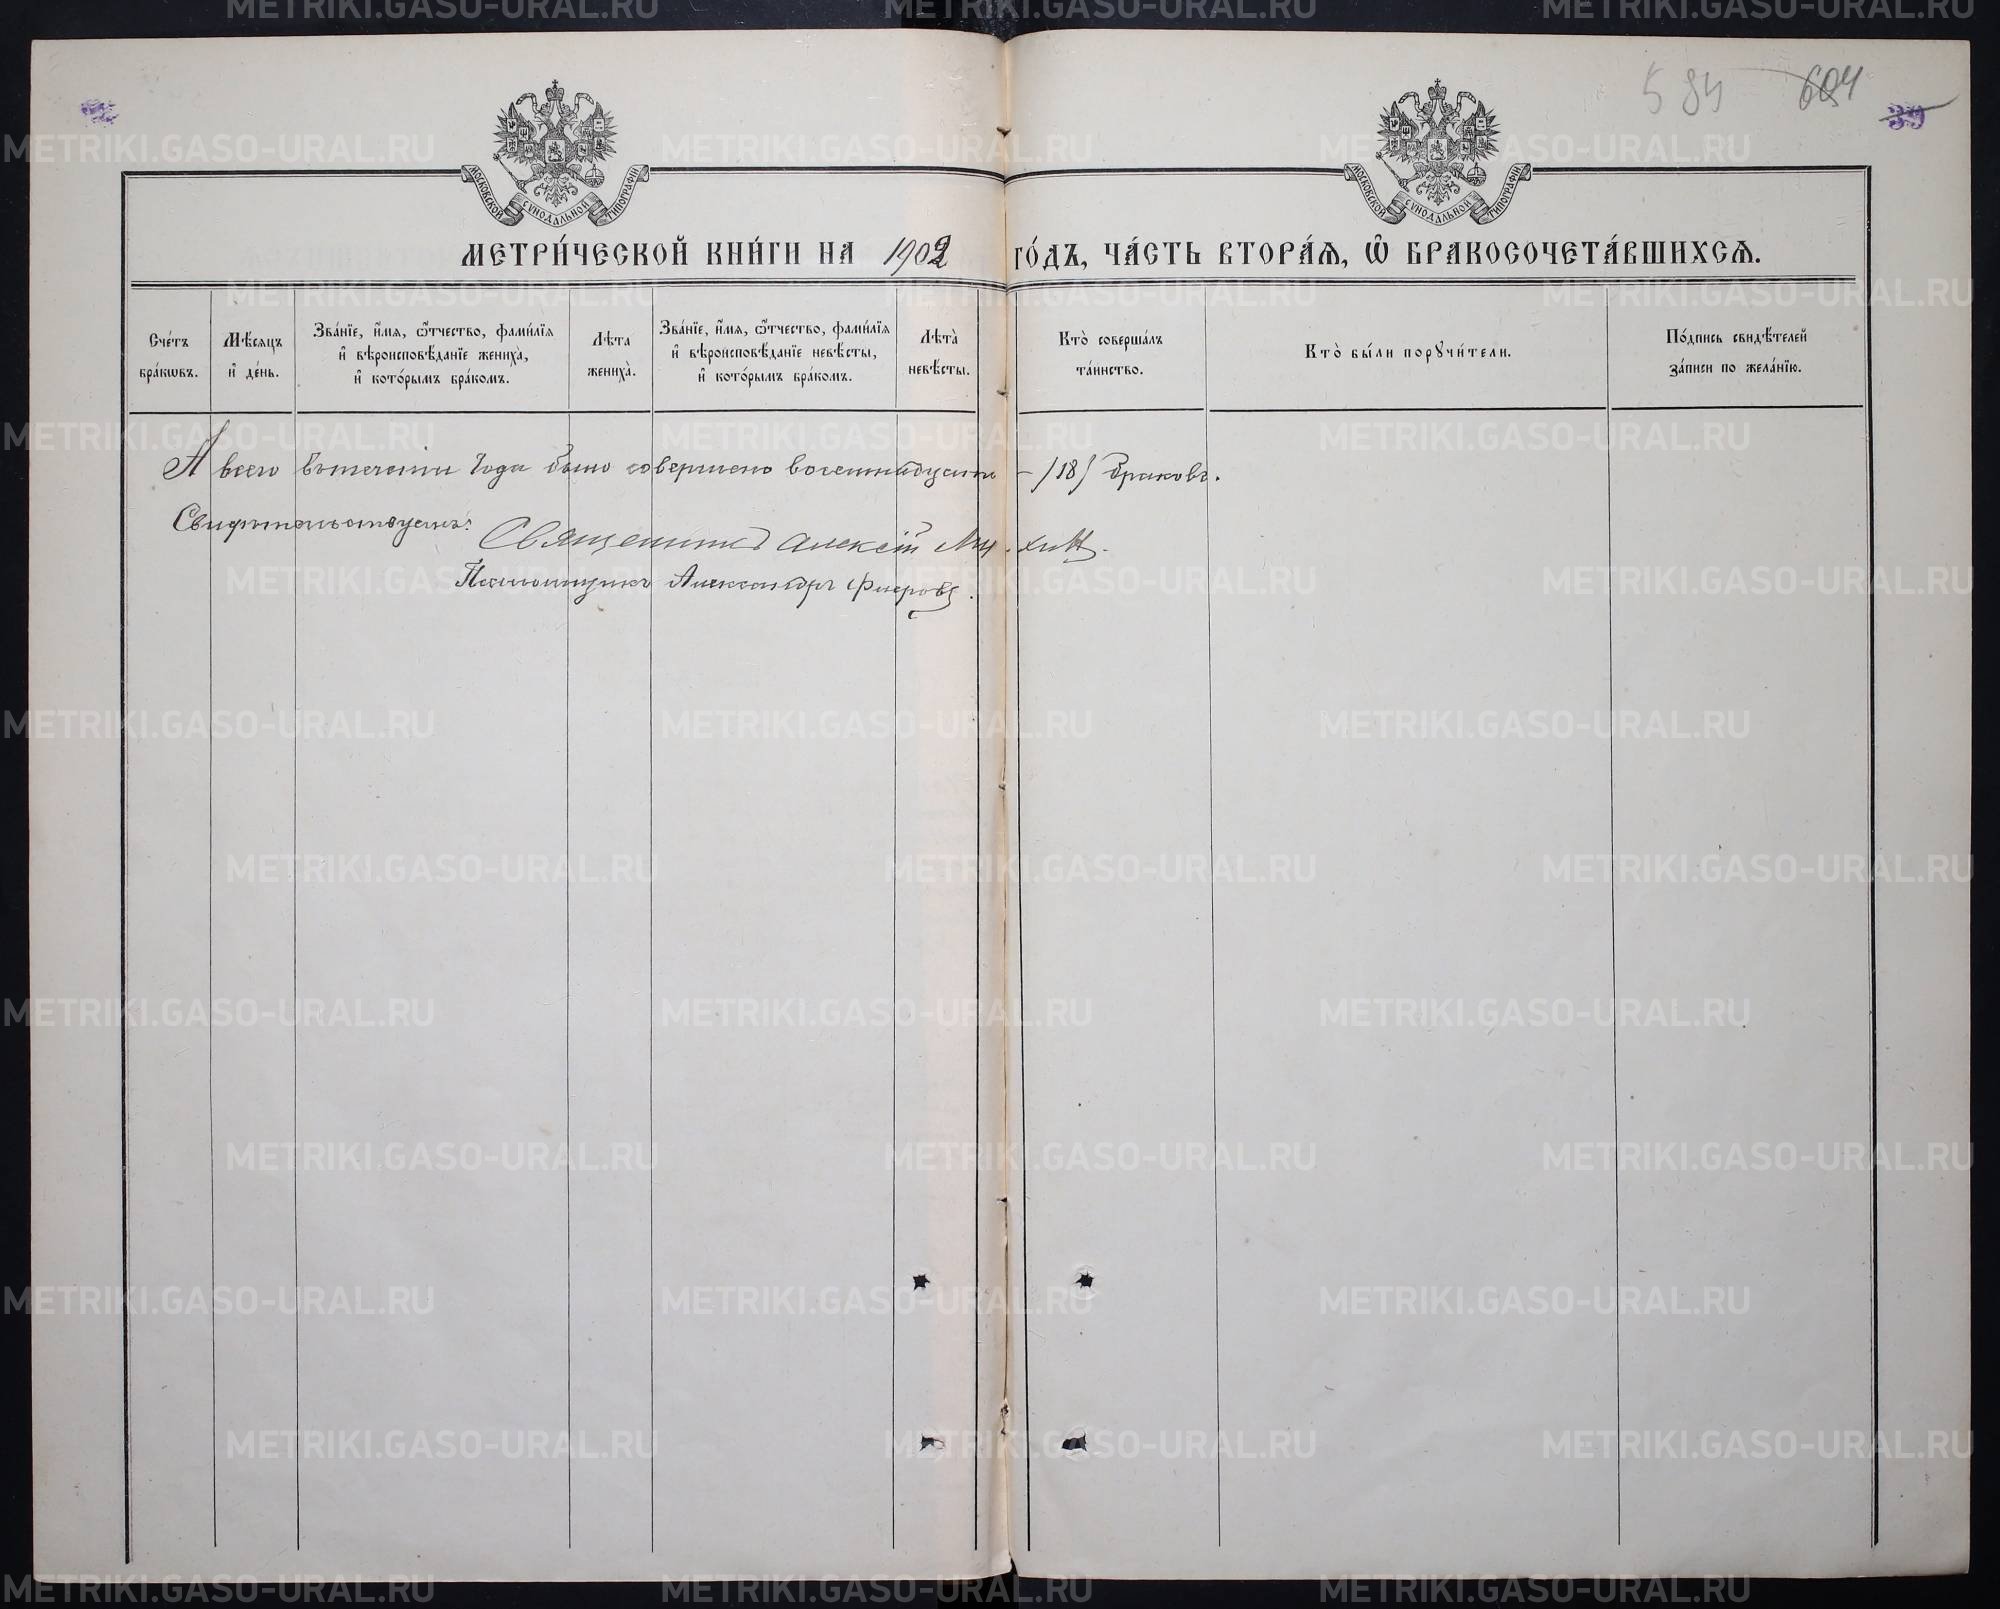 584 604
39
МОСКОВСКОЙ СѴНОДАЛЬНОЙ ТИПОГРАФІИ
МОСКОВСКОЙ СѴНОДАЛЬНОЙ ТИПОГРАФІИ
МЕТРИ́ЧЕСКОЙ КНИ́ГИ НА 1902 ГО́ДЪ, ЧА́СТЬ ВТОРА́Я, Ѽ БРАКОСОЧЕТА́ВШИХСЯ.
Сче́тъ бра́кѡвъ.
Мѣ́сяцъ и҆ де́нь.
Зва́нїе, и҆́мя, ѻ҆́тчество, фами́лїя и҆ вѣроисповѣ́данїе жениха̀, и҆ кото́рымъ бра́комъ.
Лѣ́та жениха̀.
Зва́нїе, и҆́мя, ѻ҆́тчество, фами́лїя и҆ вѣроисповѣ́данїе невѣ́сты, и҆ кото́рымъ бра́комъ.
Лѣ́та невѣ́сты.
Кто̀ соверша́лъ та́инство.
Кто̀ бы́ли порꙋчи́тели.
По́дпись свидѣ́телей за́писи по жела́нїю.
А всего въ теченіи года было совершено восемнадцать – /18/ браковъ.
Свидѣтельствуемъ:
Священникъ Алексій
Псаломщикъ Александръ Фигровъ.
METRIKI.GASO-URAL.RU